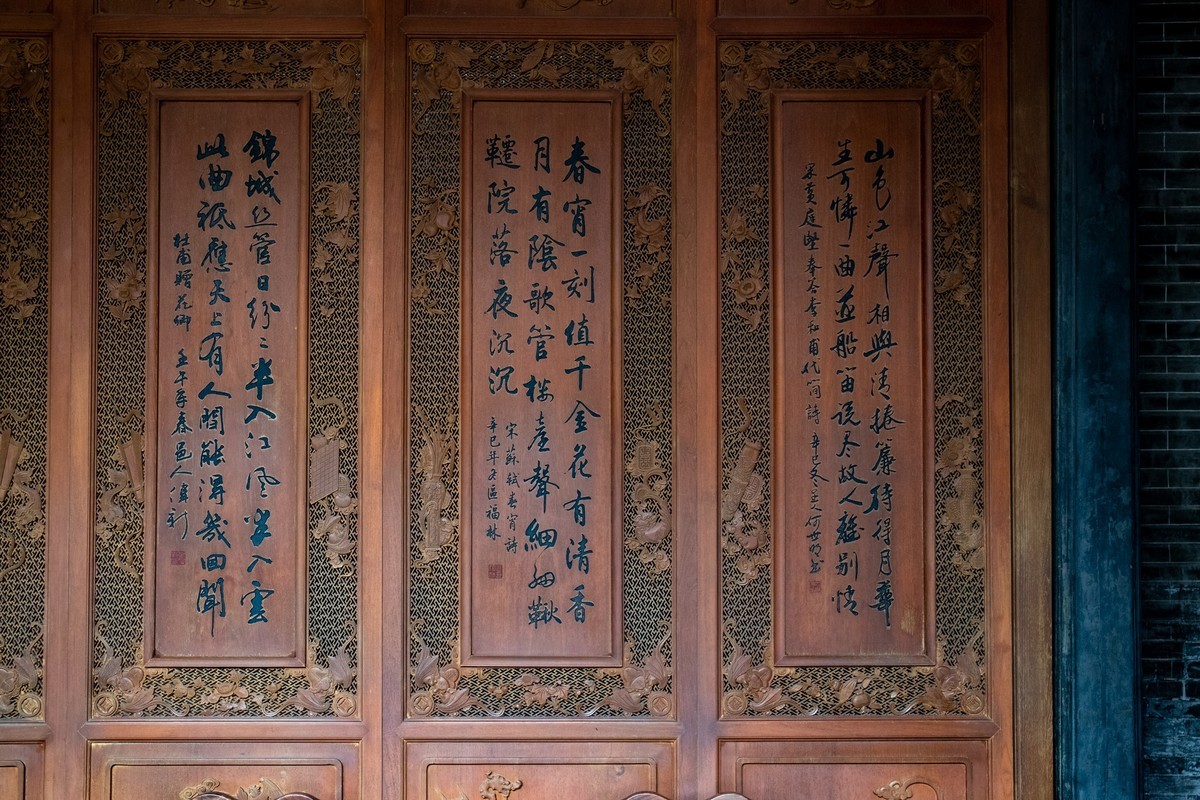 山色江聲相與清捲簾待得月華
生可憐一曲並船笛説尽故人離别情
宋黃庭堅奉答李和甫代簡詩 辛巳冬
春宵一刻值千金花有清香
月有陰歌管楼臺聲細細鞦
韆院落夜沉沉
宋蘇軾春宵詩
辛巳年冬區福林
錦城丝管日紛々半入江風半入雲
此曲祗應天上有人間能得幾回聞
杜甫贈花卿 壬午年春邑人